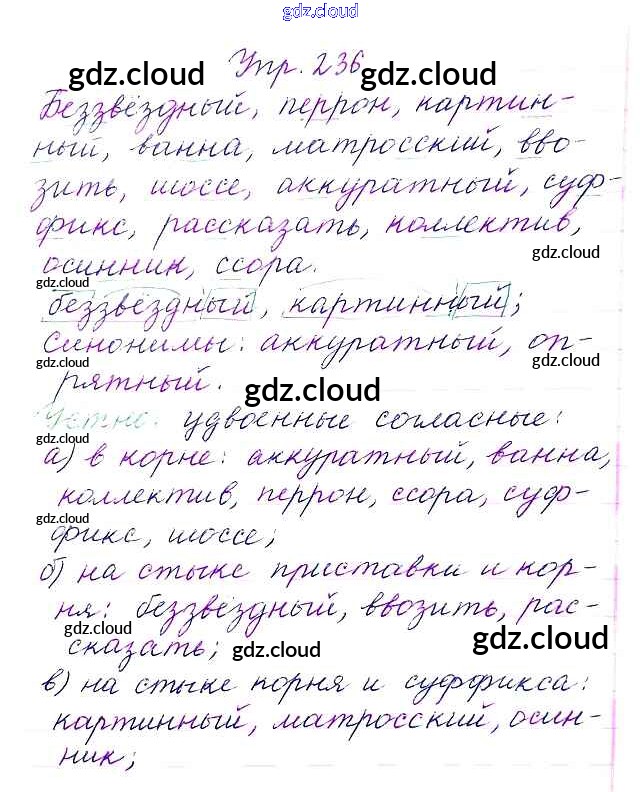 gdz.cloud
Упр. 236
gdz.cloud gdz.cloud
Беззвёздный, перрон, картин-
ный, ванна, матросский, вво-
зить, шоссе, аккуратный, суф-
фикс, рассказать, коллектив,
gdz.cloud
осинник, ссора.
gdz.cloud
беззвёздный, картинный;
Синонимы: аккуратный, оп-
gdz.cloud gdz.cloud
рятный.
gdz.cloud
Устно: удвоенные согласные:
gdz.cloud
а) в корне: аккуратный, ванна,
коллектив, перрон, ссора, суф-
gdz.cloud
фикс, шоссе;
б) на стыке приставки и кор-
ня: беззвёздный, ввозить, рас-
gdz.cloud
сказать;
gdz.cloud gdz.cloud
в) на стыке корня и суффикса:
картинный, матросский, осин-
ник;